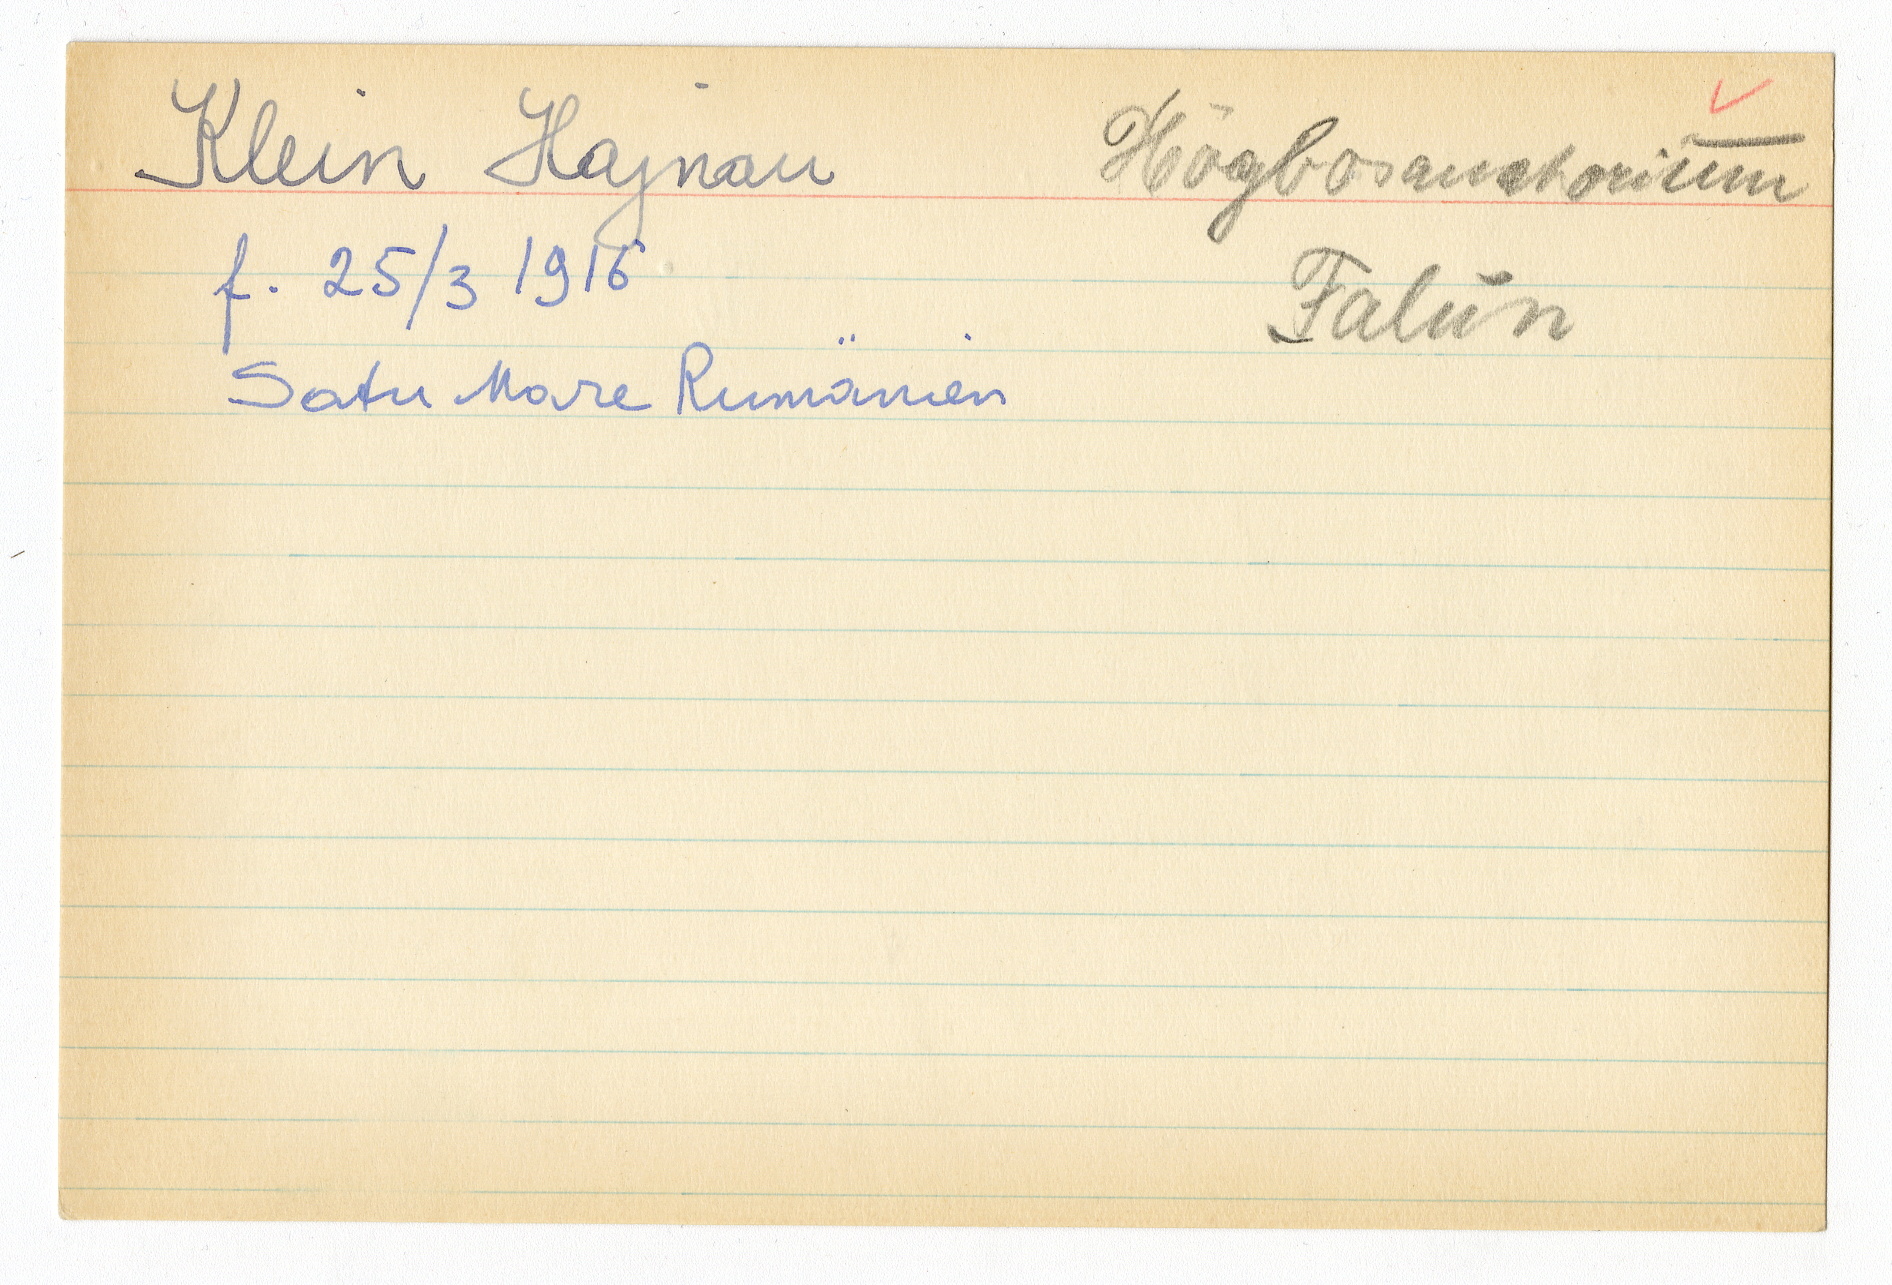 Klein Hajnau Högbosanatorium
f. 25/3 1916 Falun
Satu Mare Rumänien